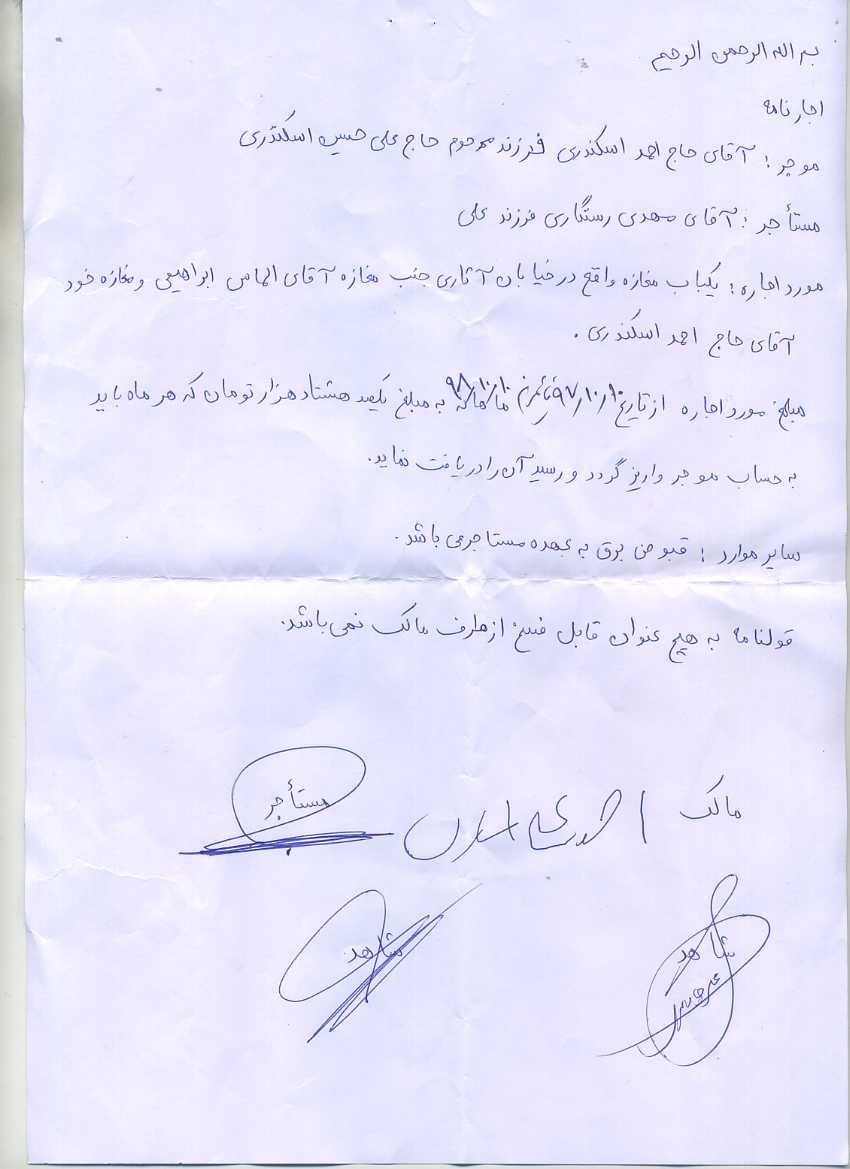 بسم الله الرحمن الرحیم
اجارنامه
موجر : آقای حاج احمد اسکندری فرزند مرحوم حاج علی حسین اسکندری
مستأجر : آقای مهدی رستگاری فرزند علی
مورد اجاره : یکباب مغازه واقع در خیابان آثاری جنب مغازه آقای الماس ابراهیمی و مغازه خود
آقای حاج احمد اسکندری .
مبلغ مورد اجاره از تاریخ ۹۷/۱۰/۱۰ ۹۸/۱۰/۱۰ به مبلغ یکصد هشتاد هزار تومان که هر ماه باید
به حساب موجر واریز گردد و رسید آن را دریافت نماید.
سایر موارد : قبوض برق به عهده مستاجر می باشد .
قولنامه به هیچ عنوان قابل فسخ از طرف مالک نمی باشد.
مالک
مستأجر
شاهد
شاهد